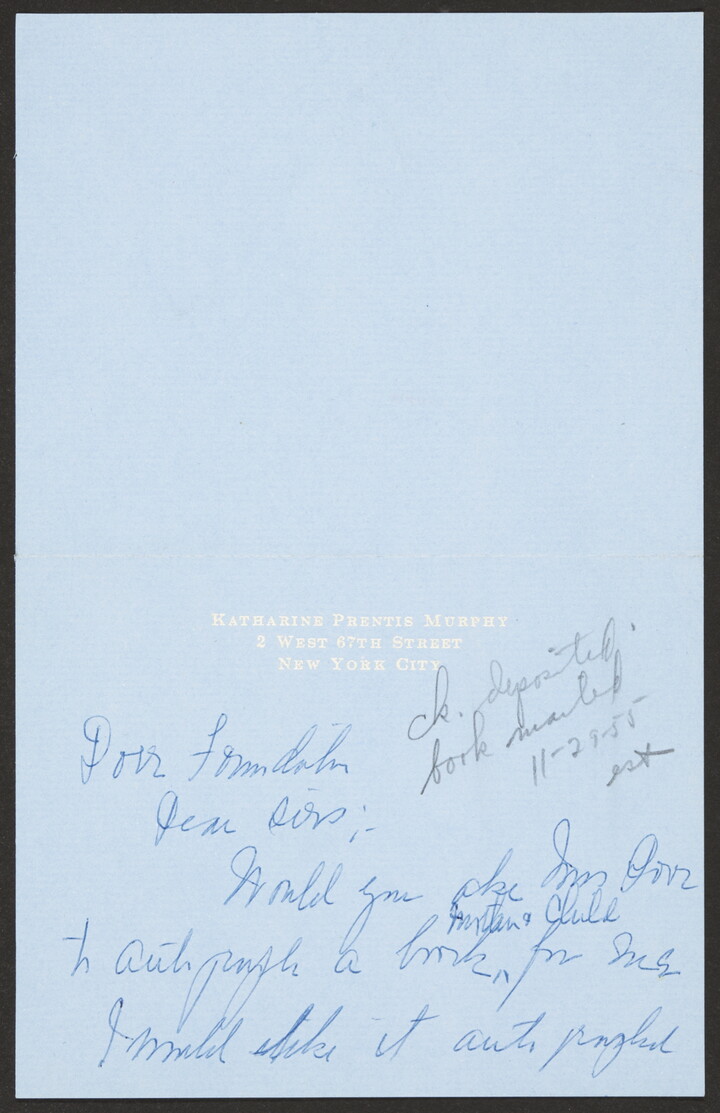 KATHARINE PRENTIS MURPHY
2 WEST 67TH STREET
NEW YORK CITY
ck. deposited;
book mailed
11-29-55
est
Dorr Foundation
Dear Sirs;-
Would you ask Mrs Dorr
Child
to autograph a book, for me
I would like it autographed